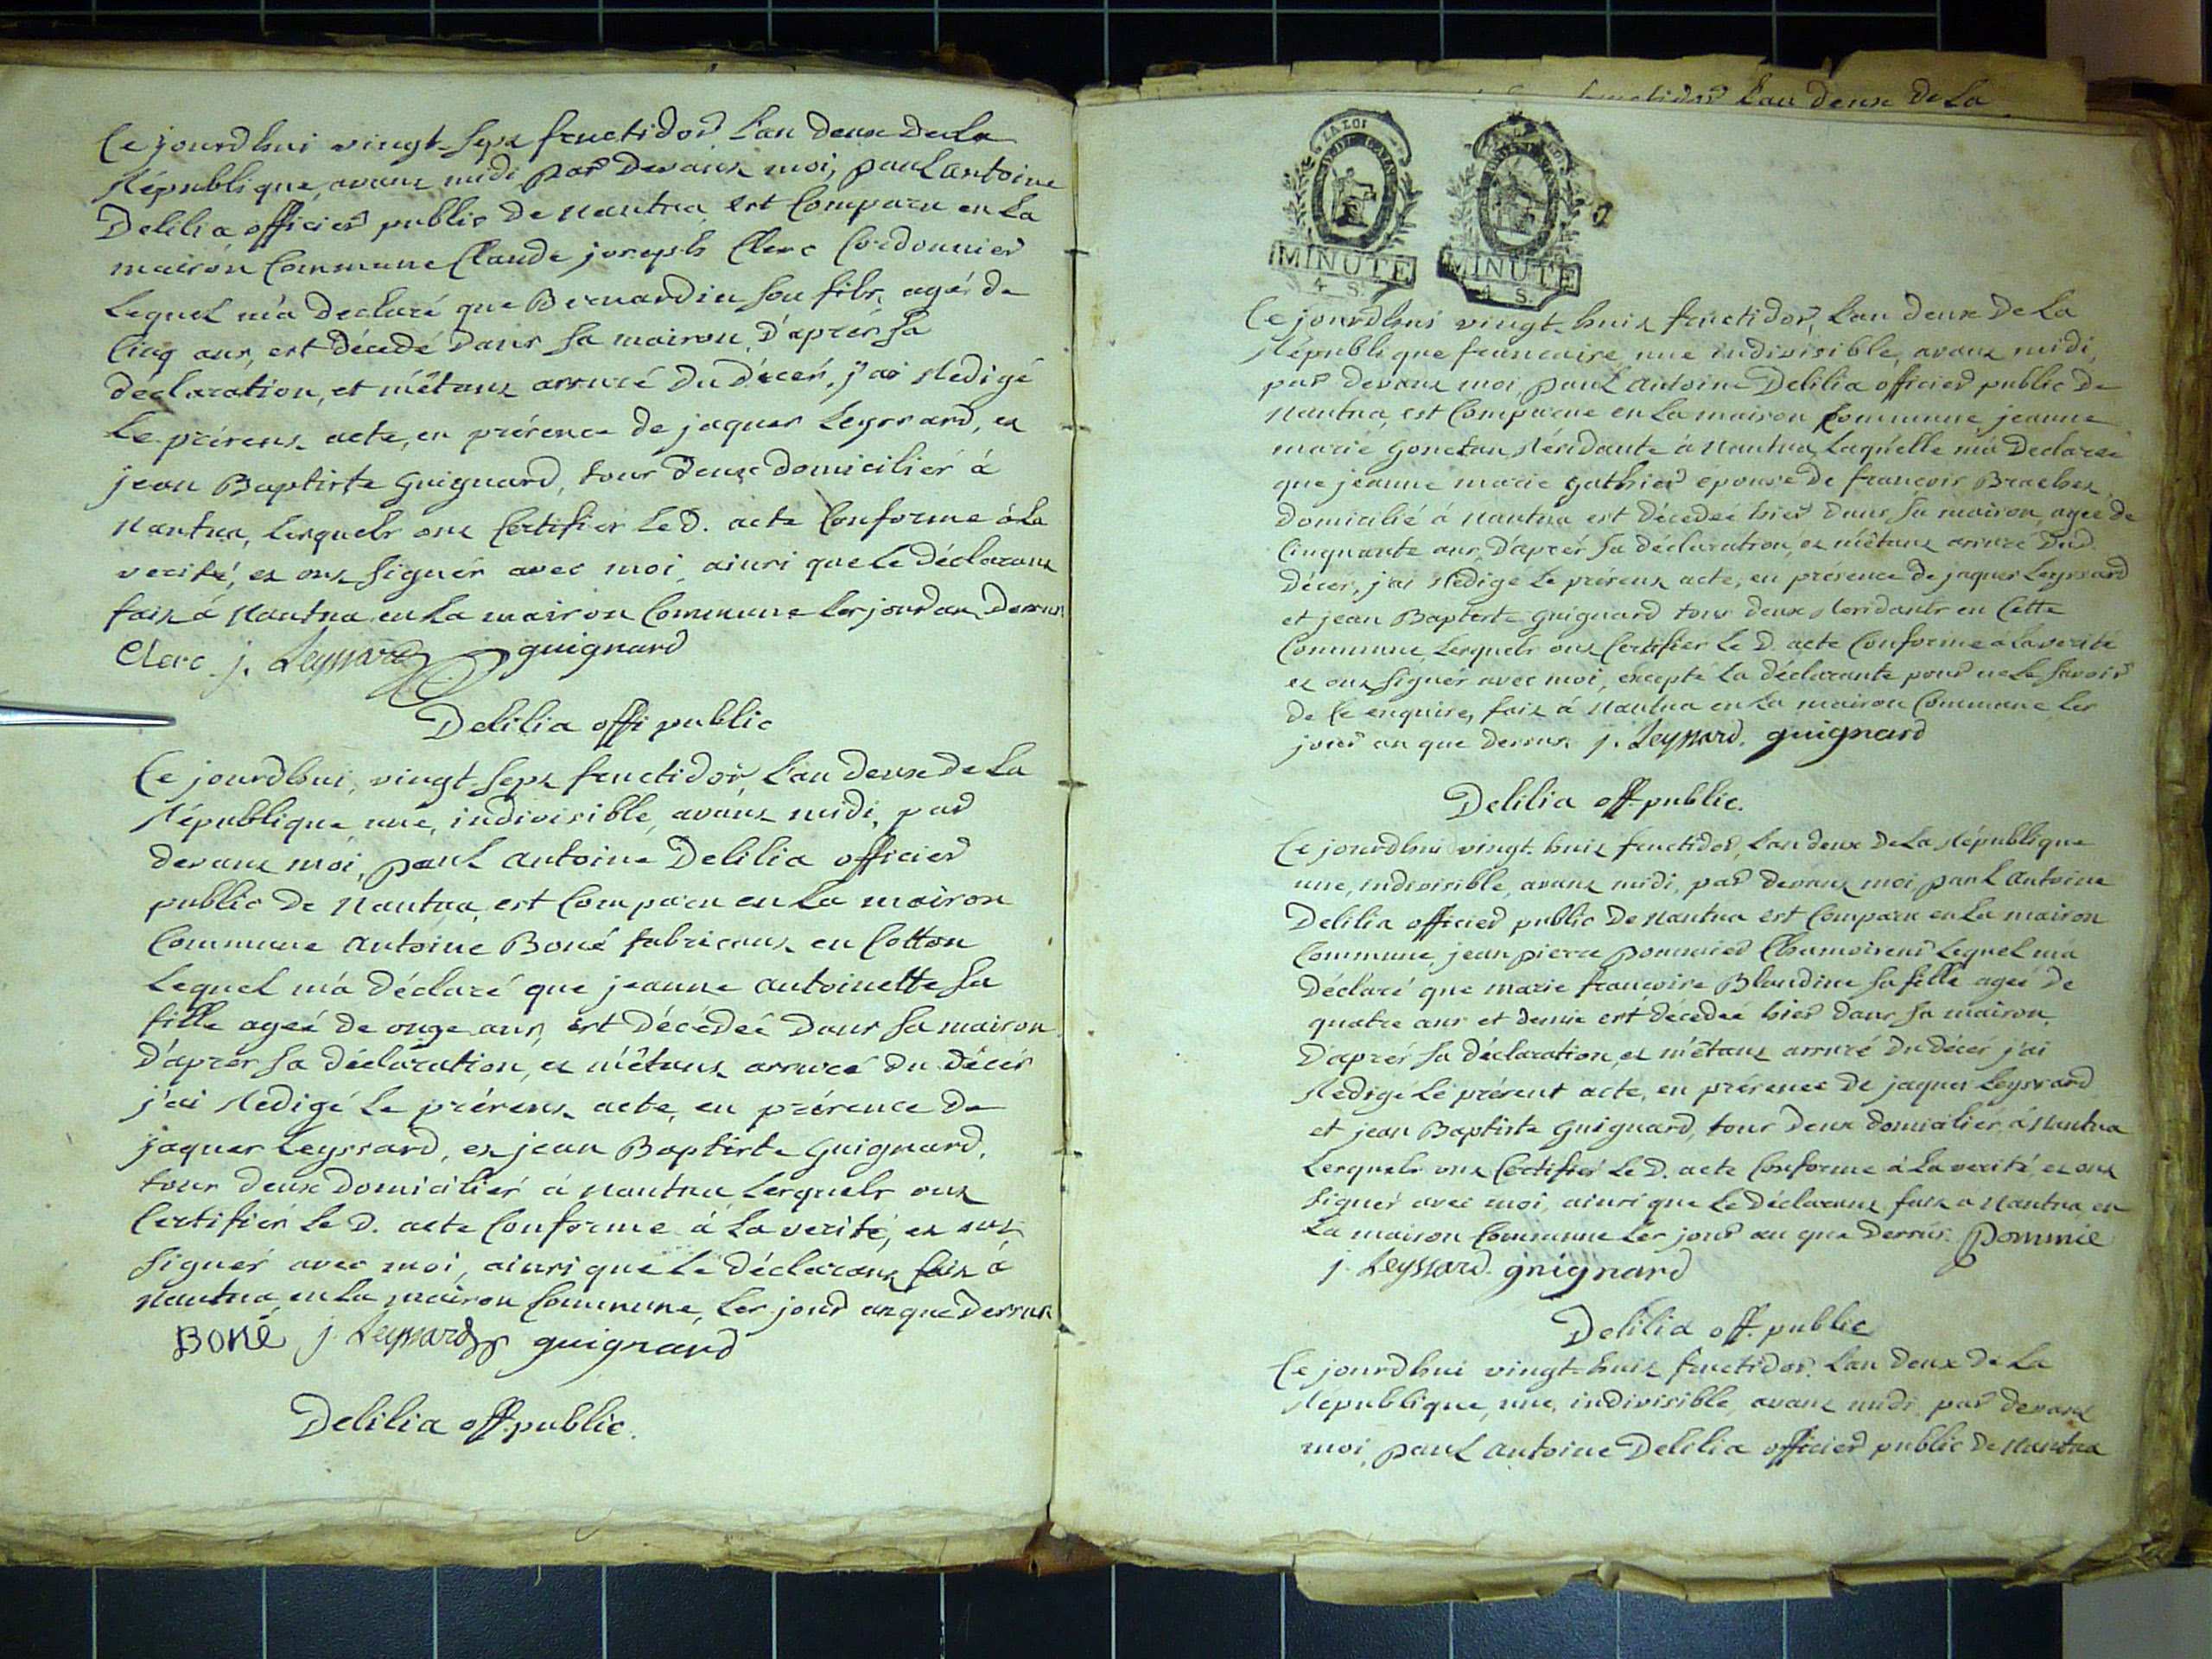 Ce jourdhui vingt-sept fructidor L'an deux de La
République, avant midi par devant moi, paul antoine
Delilia officier public de Nantua est Comparu en La
maison Commune Claude joseph Clerc Cordonnier
Lequel m'a declaré que Bernardin son fils, agé de
Cinq ans, est décedé dans sa maison, D'aprés sa
declaration, et m'êtant assuré du décés, j'ai Redigé
Le présent acte, en présence de jaques Leyssard, et
jean Baptiste Guignard, tous deux domiciliés à
Nantua, Lesquels ont Certifiés Le D. acte Conforme à La
verité, et ont signés avec moi, ainsi que Le Déclarant
fait à Nantua en La maison Commune Les jour an Dessus
Clerc j. Leyssard guignard
Delilia offi public
Ce jourdhui, vingt sept fructidor, L'an deux de La
République, une, indivisible, avant midi, par
devant moi, paul antoine Delilia officier
public de Nantua est Comparu en La maison
Commune antoine Boné fabricant en Cotton
Lequel m'a déclaré que jeanne antoinette sa
fille ageé de onze ans, est Décédeé Dans sa maison
D'aprés sa déclaration, et m'êtant assuré du décés
j'ai Redigé Le présent acte, en présence de
jaques Leyssard, et jean Baptiste Guignard,
tous deux Domiciliés à Nantua Lesquels ont
Certifiés Le D. acte Conforme à La verité, et ont
signés avec moi, ainsi que Le Déclarant fait à
Nantua en La maison Commune, Les jour an que Dessus
BONé j. Leyssard guignard
Delilia off. public.
fructidor L'an deux de La
LA LOI
MINUTE
4 S.
MINUTE
4 S.
Ce jourdhui vingt-huit fructidor, L'an deux de La
République francaise, une indivisible, avant midi,
par devant moi paul antoine Delilia officier public de
Nantua, est Comparue en La maison Commune, jeanne
marie Gonetan Résidante à Nantua, Laquelle m'a Declareé
que jeanne marie Gathier epouse de francois Brachet
Domicilié à Nantua est Décedeé hier Dans sa maison, ageé de
Cinquante ans, D'aprés sa Déclaration, et m'êtant assuré Dud.
Décés, j'ai Redigé Le présent acte, en présence de jaques Leyssard
et jean Baptiste Guignard tous deux Residants en Cette
Commune, Lesquels ont Certifiés Le D. acte Conforme a La verité
et ont signés avec moi, excepté La déclarante pour ne Le savoir
de Ce enquise, fait à Nantua en La maison Commune Les
jour an que dessus. j. Leyssard. guignard
Delilia off. public.
Ce jourdhui vingt-huit fructidor, L'an deux de La République
une, indivisible, avant midi, par devant moi, paul antoine
Delilia officier public de Nantua est Comparu en La maison
Commune, jean pierre pommier Chamoiseur Lequel m'a
Déclaré que marie francoise Blandine sa fille ageé de
quatre ans et demie est décedeé hier dans sa maison,
D'aprés sa déclaration, et m'êtant assuré du décés j'ai
Redigé Le présent acte, en présence de jaques Leyssard
et jean Baptiste Guignard, tous deux domiciliés, à Nantua
Lesquels ont Certifiés Le D. acte Conforme à La verité, et ont
signés avec moi, ainsi que Le Déclarant fait a Nantua en
La maison Commune Les jour an que Dessus. Pommié
j. Leyssard guignard
Delilia off. public
Ce jourdhui vingt-huit fructidor. L'an deux de La
République, une, indivisible, avant midi, par devant
moi, paul antoine Delilia officier public de Nantua